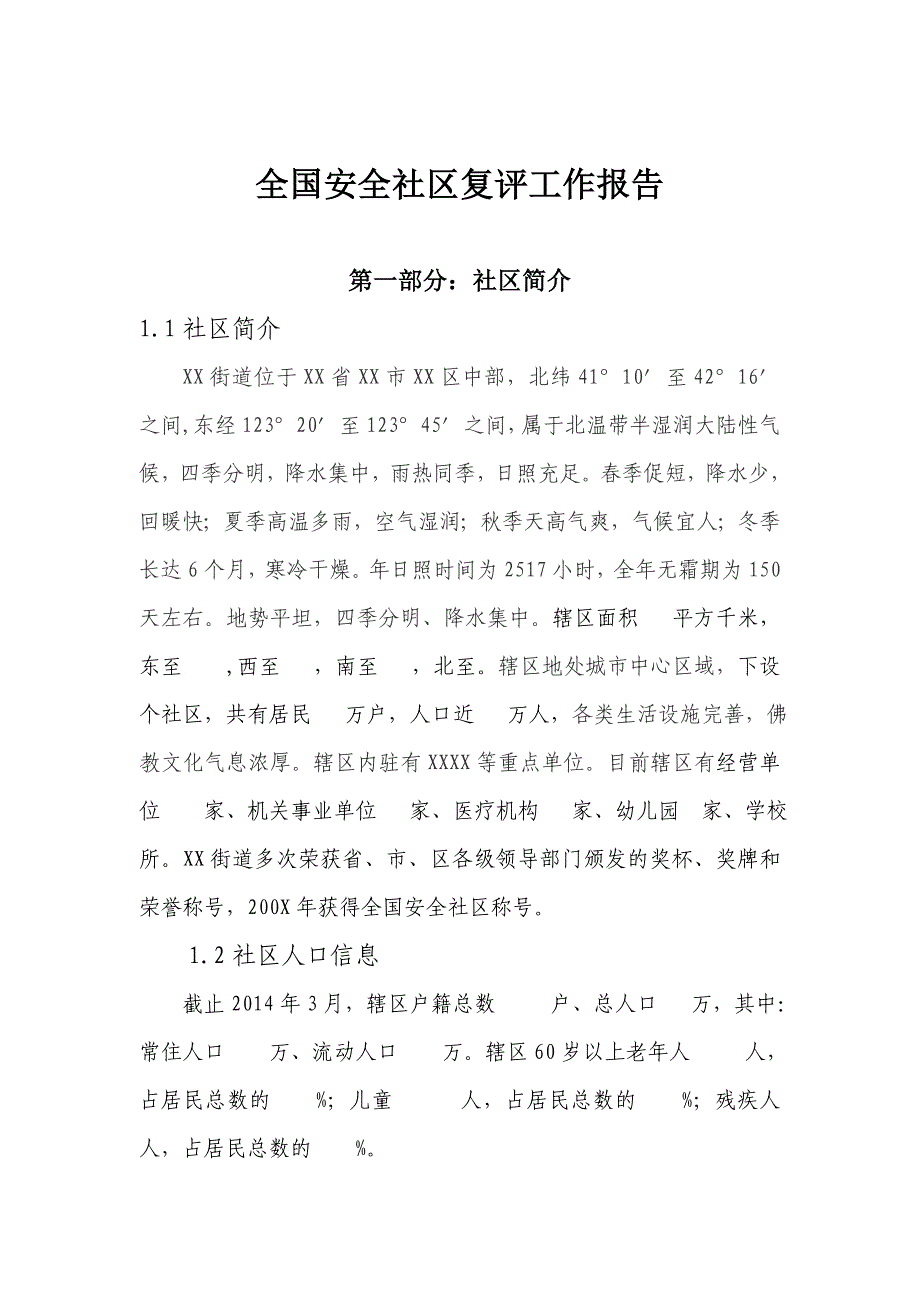 全国安全社区复评工作报告
第一部分：社区简介
1.1社区简介
XX街道位于XX省XX市XX区中部，北纬41°10′至42°16′
之间,东经123°20′至123°45′之间，属于北温带半湿润大陆性气
候，四季分明，降水集中，雨热同季，日照充足。春季促短，降水少，
回暖快；夏季高温多雨，空气湿润；秋季天高气爽，气候宜人；冬季
长达6个月，寒冷干燥。年日照时间为2517小时，全年无霜期为150
天左右。地势平坦，四季分明、降水集中。辖区面积    平方千米，
东至    ,西至    ，南至    ，北至。辖区地处城市中心区域，下设
个社区，共有居民    万户，人口近    万人，各类生活设施完善，佛
教文化气息浓厚。辖区内驻有XXXX等重点单位。目前辖区有经营单
位    家、机关事业单位    家、医疗机构    家、幼儿园    家、学校
所。XX街道多次荣获省、市、区各级领导部门颁发的奖杯、奖牌和
荣誉称号，200X年获得全国安全社区称号。
1.2社区人口信息
截止2014年3月，辖区户籍总数    户、总人口    万，其中：
常住人口    万、流动人口    万。辖区60岁以上老年人    人，
占居民总数的    %；儿童    人，占居民总数的    %；残疾人
人，占居民总数的    %。